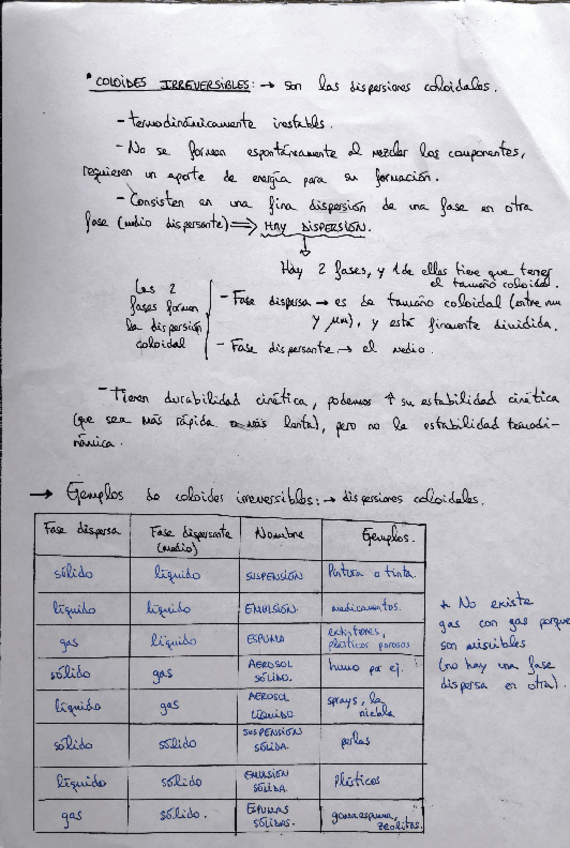 * COLOIDES IRREVERSIBLES: → son las dispersiones coloidales.
- termodinámicamente inestables.
- No se forman espontáneamente al mezclar los componentes,
requieren un aporte de energía para su formación.
- Consisten en una fina dispersión de una fase en otra
fase (medio dispersante) ⇒ HAY DISPERSIÓN.
Hay 2 fases, y 1 de ellas tiene que tener
el tamaño coloidal.
Las 2
fases forman
la dispersión
coloidal
- Fase dispersa → es de tamaño coloidal (entre nm
y μm), y está finamente dividida.
- Fase dispersante → el medio.
- Tienen durabilidad cinética, podemos ↑ su estabilidad cinética
(que sea más rápida o más lenta), pero no la estabilidad termodi-
námica.
→ Ejemplos de coloides irreversibles: → dispersiones coloidales.
Fase dispersa Fase dispersante (medio) Nombre Ejemplos.
sólido líquido SUSPENSIÓN Pintura o tinta.
líquido líquido EMULSIÓN medicamentos.
gas líquido ESPUMA extintores, plásticos porosos
sólido gas AEROSOL SÓLIDO. humo por ej.
líquido gas AEROSOL LÍQUIDO sprays, la niebla
sólido sólido SUSPENSIÓN SÓLIDA. perlas
líquido sólido EMULSIÓN SÓLIDA. Plásticos
gas sólido. ESPUMAS SÓLIDAS. gomaespuma, zeolitas.
* No existe
gas con gas porque
son miscibles
(no hay una fase
dispersa en otra).